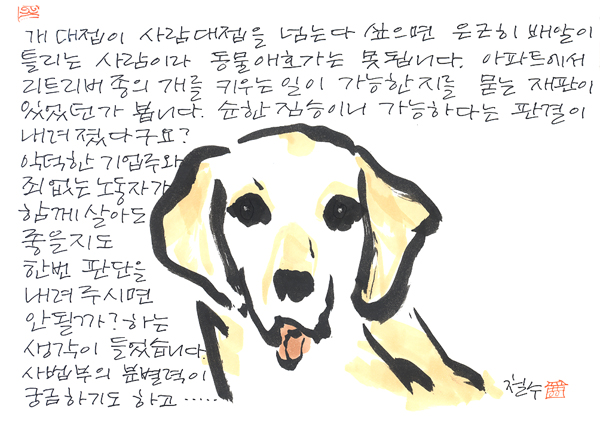 개 대접이 사람대접을 넘는다 싶으면 은근히 배알이
틀리는 사람이라 동물애호가는 못됩니다. 아파트에서
리트리버 종의 개를 키우는 일이 가능한지를 묻는 재판이
있었던가 봅니다. 순한 짐승이니 가능하다는 판결이
내려졌다구요?
악덕한 기업주와
죄없는 노동자가
함께 살아도
좋을지도
한번 판단을
내려 주시면
안될까? 하는
생각이 들었습니다.
사법부의 분별력이
궁금하기도 하고……
철수